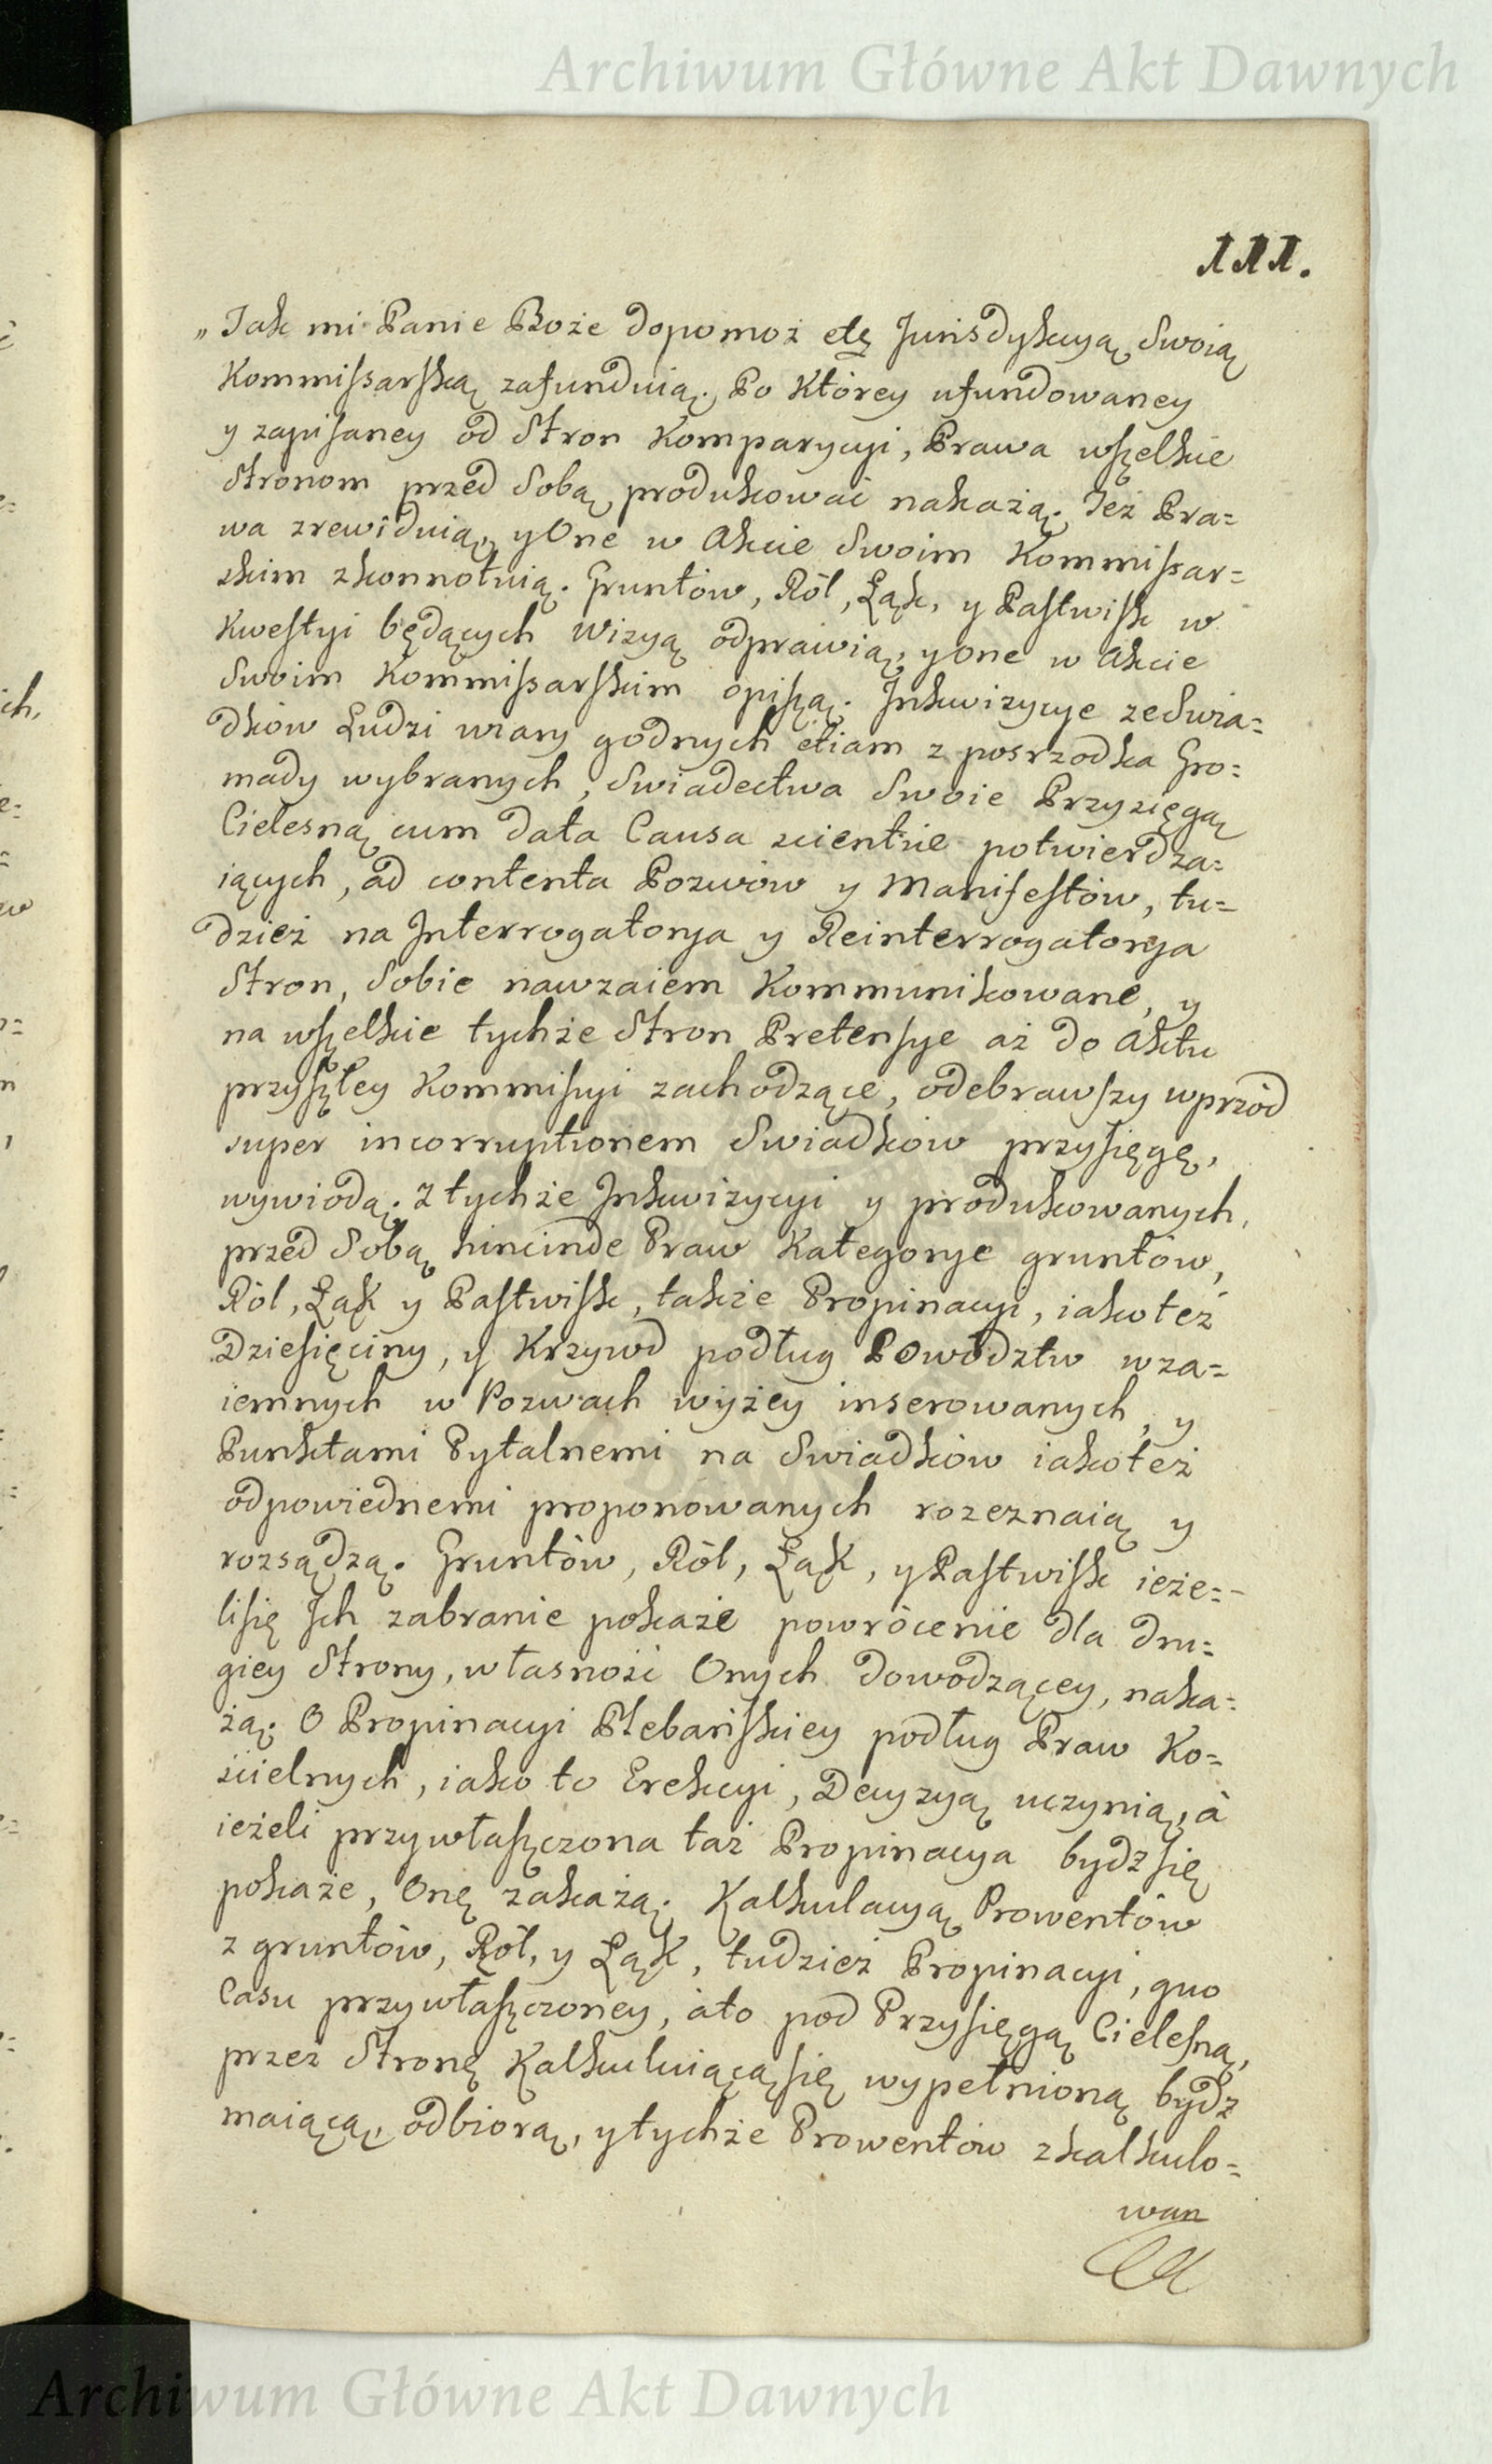 Archiwum Główne Akt Dawnych
111.
„Jak mi Panie Boże dopomoż etc Jurisdykcyą Swoią
Kommissarską zafunduią. Po Ktorey ufundowaney
y zapisaney od Stron Komparycyi, Prawa wszelkie
Stronom przed Sobą produkować nakażą. Też Pra=
wa zrewiduią, y One w Akcie Swoim Kommissar=
skim zkonnotuią. Gruntów, Ról, Łąk, y Pastwisk w
Kwestyi będących Wizyą odprawią, y One w Akcie
Swoim Kommissarskim opiszą. Inkwizycye ze Swia=
dków Ludzi wiary godnych etiam z posrzodka Gro=
mady wybranych, Swiadectwa Swoie Przysięgą
Cielesną cum data Causa scientie potwierdza=
iących, ad contenta Pozwów y Manifestów, tu=
dzież na Interrogatorya y Reinterrogatorya
Stron, Sobie nawzaiem Kommunikowane, y
na wszelkie tychże Stron Pretensye aż do Aktu
przyszłey Kommisyi zachodzące, odebrawszy wprzód
super incorruptionem Swiadków przysięgę,
wywiodą. Z tychże Inkwizycyi y produkowanych,
przed Sobą hincinde Praw Kategorye gruntów,
Ról, Łąk y Pastwisk, także Propinacyi, iako też
Dziesięciny, y Krzywd podług Powództw wza=
iemnych w Pozwach wyżey inserowanych, y
Punktami Pytalnemi na Swiadków iakoteż
odpowiednemi proponowanych rozeznaią y
rozsądzą. Gruntów, Ról, Łąk, y Pastwisk ieże=
lisię Ich zabranie pokaże powrócenie dla dru=
giey Strony, własność Onych dowodzącey, naka=
żą. O Propinacyi Plebańskiey podług Praw Ko=
ścielnych, iako to Erekcyi, Decyzyą uczynią, à
ieżeli przywłaszczona taż Propinacya bydz się
pokaże, Onę zakażą. Kalkulacyą Prowentów
z gruntów, Ról, y Łąk, tudzież Propinacyi, quo
Casu przywłaszczoney, àto pod Przysięgą Cielesną,
przez Stronę Kalkuluiącąsię wypełnioną bydz
maiącą, odbiorą, y tychże Prowentów zkalkulo=
wan
Archiwum Główne Akt Dawnych